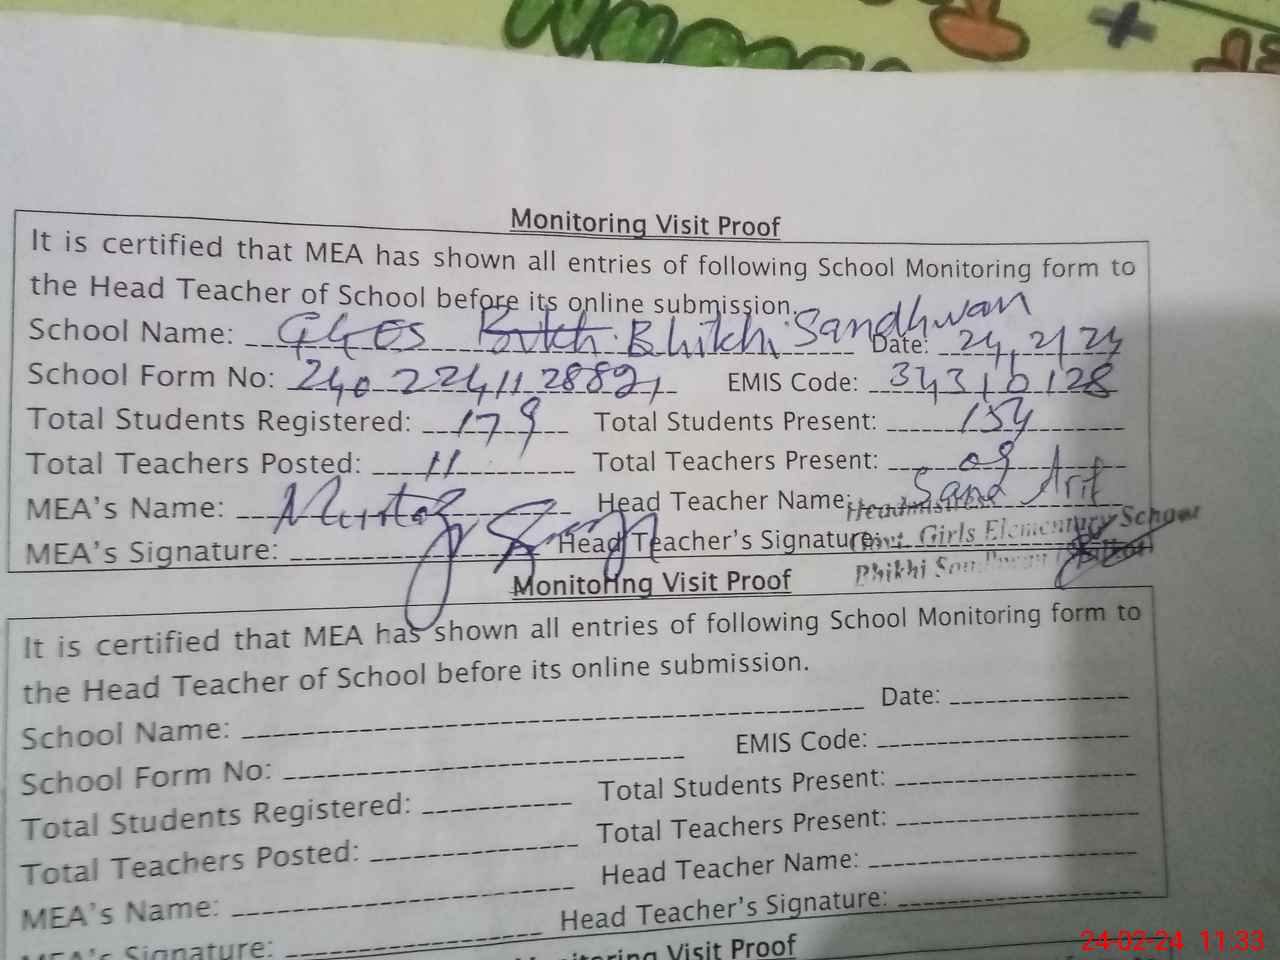 Monitoring Visit Proof
It is certified that MEA has shown all entries of following School Monitoring form to
the Head Teacher of School before its online submission.
School Name: GGES Bhikhi Sandhwan Date: 24,2/24
School Form No: EMIS Code: 34310128
Total Students Registered: 179 Total Students Present: 154
Total Teachers Posted: 11 Total Teachers Present: 08
MEA's Name: Head Teacher Name: Sana Arif
Headmistress
MEA's Signature: Head Teacher's Signature: Govt. Girls Elementary School
Monitoring Visit Proof
It is certified that MEA has shown all entries of following School Monitoring form to
the Head Teacher of School before its online submission.
School Name: Date:
School Form No: EMIS Code:
Total Students Registered: Total Students Present:
Total Teachers Posted: Total Teachers Present:
MEA's Name: Head Teacher Name:
MEA's Signature: Head Teacher's Signature:
Monitoring Visit Proof
24-02-24 11:33